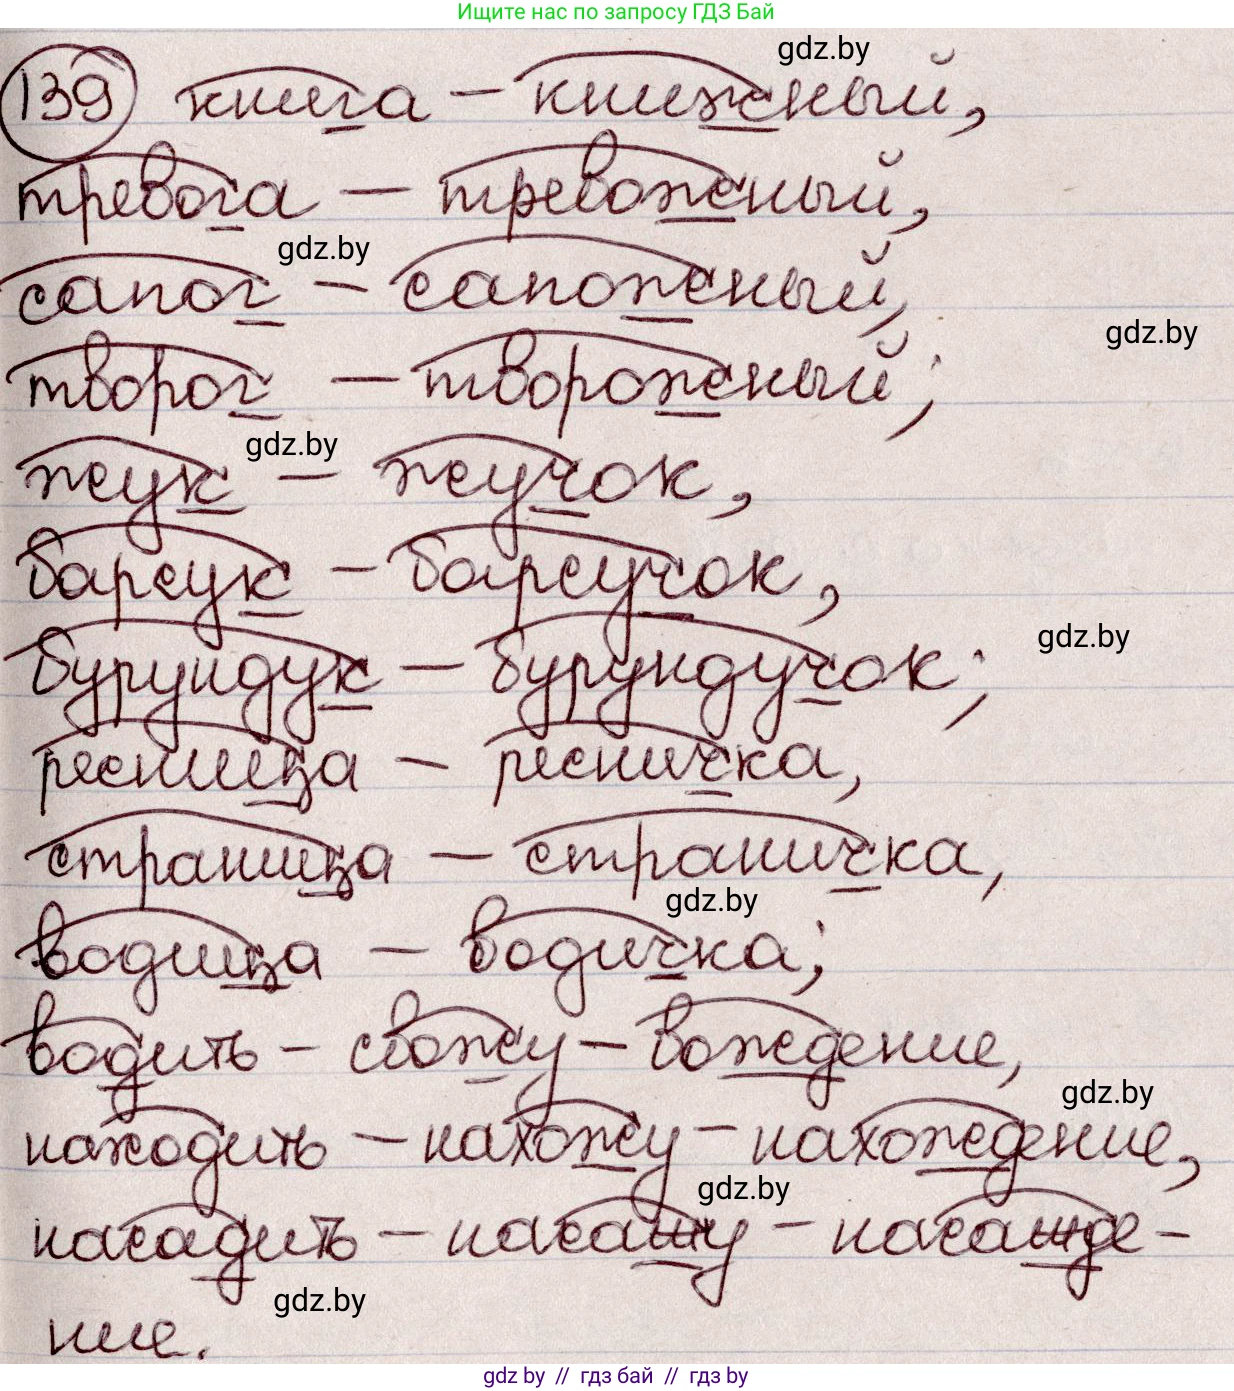 Ищите нас по запросу ГДЗ Бай
gdz.by
139 книга – книжный,
тревога – тревожный,
gdz.by
сапог – сапожный,
gdz.by
творог – творожный;
gdz.by
жук – жучок,
барсук – барсучок,
gdz.by
бурундук – бурундучок;
ресница – ресничка,
страница – страничка,
gdz.by
водица – водичка;
водить – свожу – вождение,
gdz.by
находить – нахожу – нахождение,
gdz.by
насадить – насажу – насажде-
gdz.by
ние.
gdz.by // гдз бай // гдз by